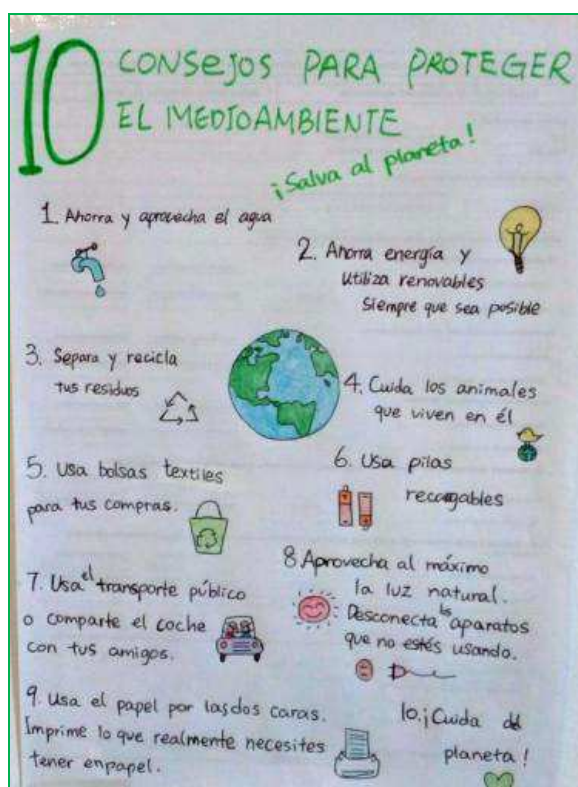 10 CONSEJOS PARA PROTEGER
EL MEDIOAMBIENTE
¡Salva al planeta!
1. Ahorra y aprovecha el agua
2. Ahorra energía y
utiliza renovables
siempre que sea posible
3. Separa y recicla
tus residuos
4. Cuida los animales
que viven en él
5. Usa bolsas textiles
para tus compras.
6. Usa pilas
recargables
7. Usa el transporte público
o comparte el coche
con tus amigos.
8. Aprovecha al máximo
la luz natural.
Desconecta los aparatos
que no estés usando.
9. Usa el papel por las dos caras.
Imprime lo que realmente necesites
tener en papel.
10. ¡Cuida del
planeta!